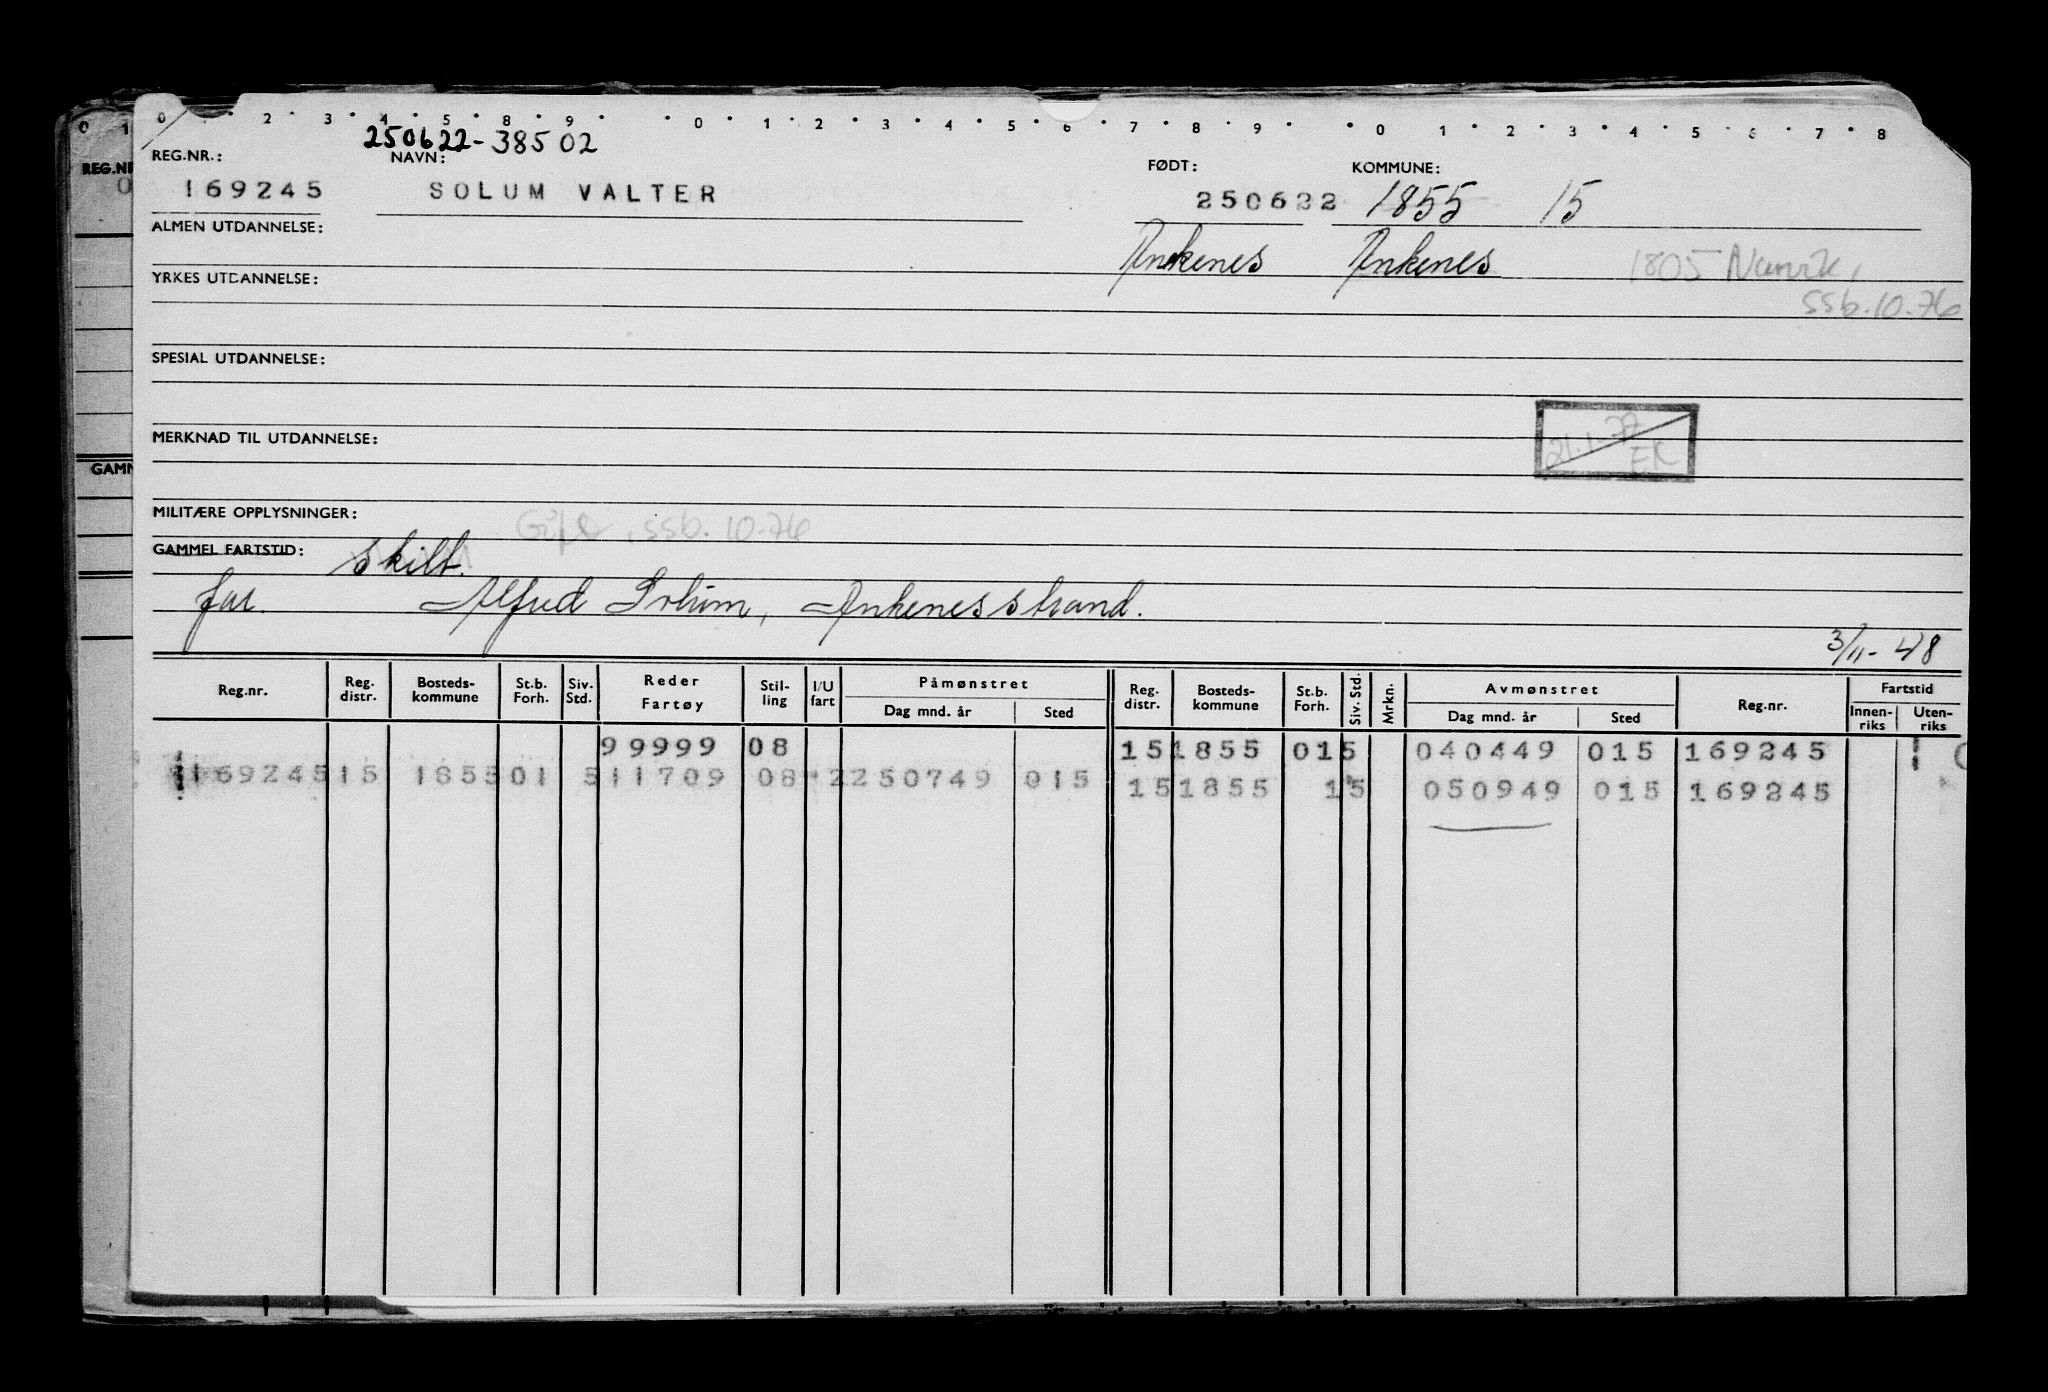 0 1 2 3 4 5 8 9 0 1 2 3 4 5 6 7 8 9 0 1 2 3 4 5 6 7 8
250622-38502
REG.NR.: NAVN: FØDT: KOMMUNE:
169245 SOLUM VALTER 250622 1855 15
ALMEN UTDANNELSE: Ankenes Ankenes 1805 Narvik,
YRKES UTDANNELSE: ssb.10.76
SPESIAL UTDANNELSE:
MERKNAD TIL UTDANNELSE: 21.1.77 EK
MILITÆRE OPPLYSNINGER: Gift, ssb. 10-76
GAMMEL FARTSTID: skilt.
far. Alfred Solum, Ankenesstrand.
3/11-48
Reg.nr. Reg. distr. Bosteds-kommune St.b. Forh. Siv. Std. Reder Fartøy Stil-ling I/U fart Påmønstret Dag mnd. år Sted Reg. distr. Bosteds-kommune St.b. Forh. Siv. Std. Mrkn. Avmønstret Dag mnd. år Sted Reg.nr. Fartstid Innen-riks Uten-riks
99999 08 15 1855 01 5 040449 015 169245 1 0
169245 15 1855 01 5 11709 08 2 250749 015 15 1855 1 5 050949 015 169245